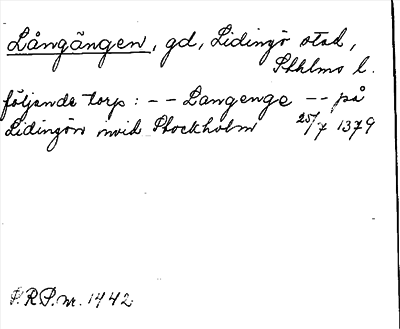 Långängen, gd, Lidingö stad,
Sthlms l.
följande torp: -- Langenge -- på
Lidingön invid Stockholm 25/7 1379
S.R.P. nr. 1442